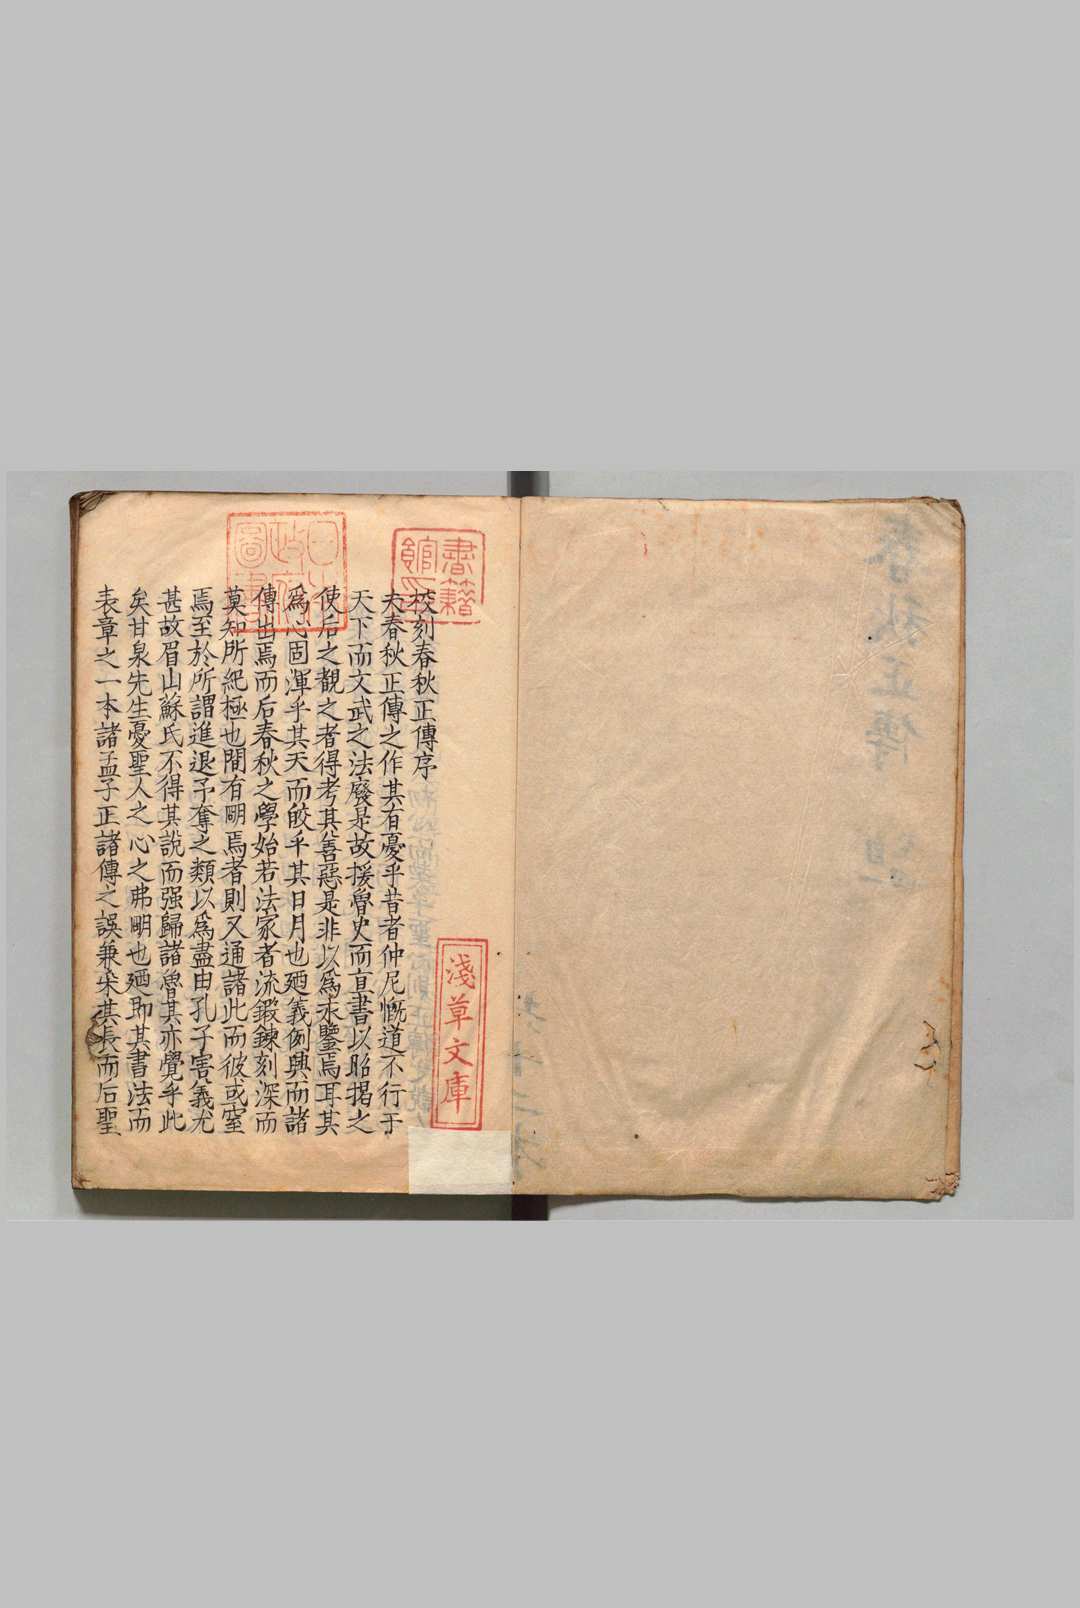 春秋正傳
校刻春秋正傳序
夫春秋正傳之作其有憂乎昔者仲尼慨道不行于
天下而文武之法廢是故援魯史而直書以昭揭之
使后之觀之者得考其善惡是非以爲永鑒焉耳其
爲心固渾乎其天而皎乎其日月也廼義例興而諸
傳出焉而后春秋之學始若法家者流鍛鍊刻深而
莫知所紀極也間有明焉者則又通諸此而彼或窒
焉至於所謂進退予奪之類以爲盡由孔子害義尤
甚故眉山蘇氏不得其說而强歸諸魯其亦覺乎此
矣甘泉先生憂聖人之心之弗明也廼即其書法而
表章之一本諸孟子正諸傳之誤兼采其長而后聖
書籍館印
日本政府圖書
淺草文庫